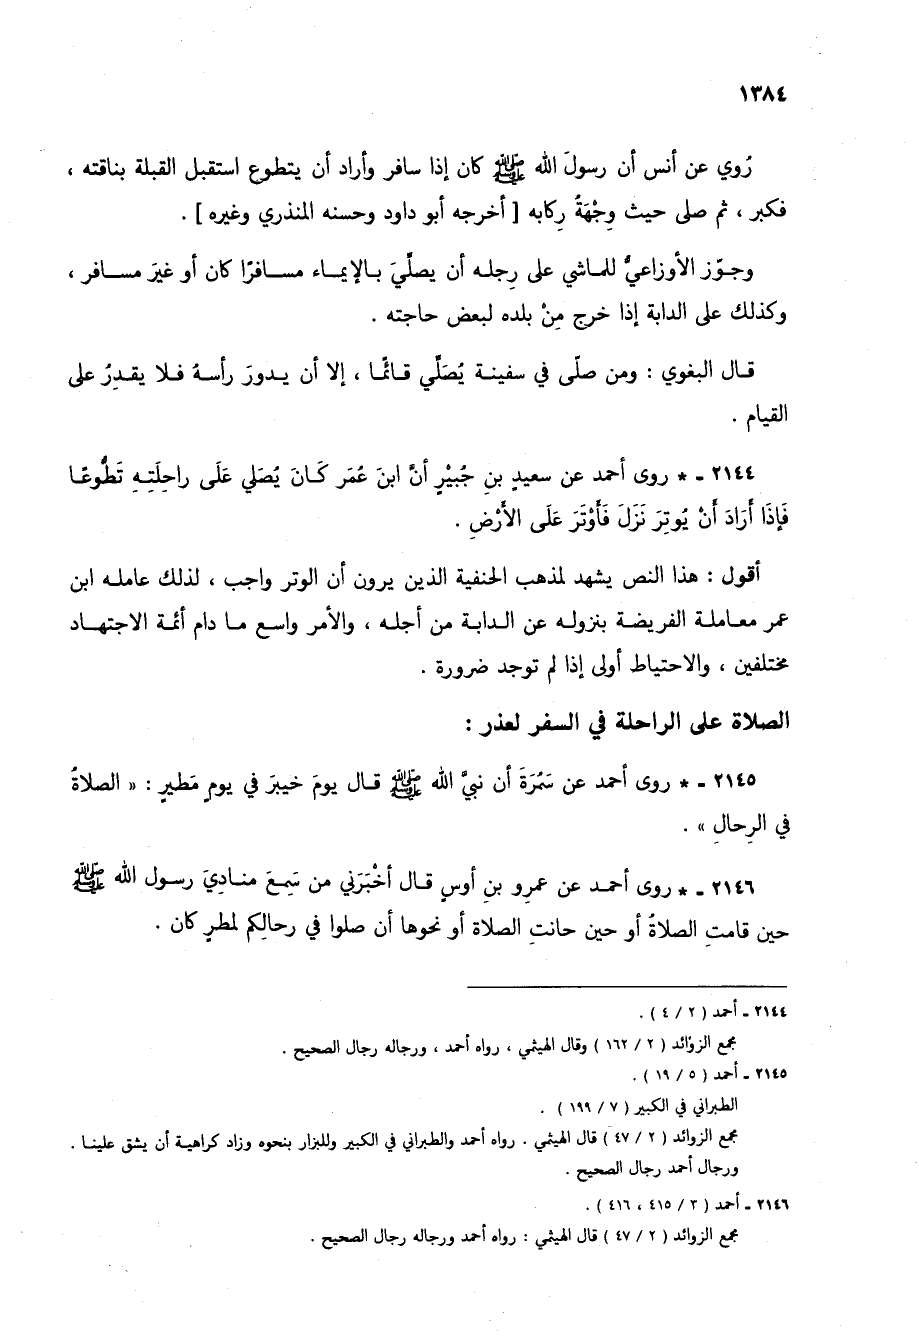 ١٣٨٤
رُوي عن أنس أن رسولَ الله ﷺ كان إذا سافر وأراد أن يتطوع استقبل القبلة بناقته ،
فكبر ، ثم صلى حيث وِجْهَةُ رِكابه [ أخرجه أبو داود وحسنه المنذري وغيره ] .
وجـوّز الأوزاعيُّ للماشي على رِجلـه أن يصلِّيَ بـالإيمـاء مسـافرًا كان أو غيرَ مسـافر ،
وكذلك على الدابة إذا خرج مِنْ بلده لبعض حاجته .
قـال البغوي : ومن صلّى في سفينـة يُصَلِّي قـائمًـا ، إلا أن يـدورَ رأسـهُ فـلا يقـدِرُ على
القيام .
٢١٤٤ ـ * روى أحمد عن سعيدٍ بنِ جُبيْرٍ أنَّ ابنَ عُمَر كَـانَ يُصَلي عَلَى راحِلَتِـهِ تَطُّوعًـا
فَإذَا أَرَادَ أَنْ يُوتِرَ نَزَلَ فَأَوْتَرَ عَلَى الأَرْضِ .
أقول : هذا النص يشهد لمذهب الحنفية الذين يرون أن الوتر واجب ، لذلك عاملـه ابن
عمر معـاملـة الفريضـة بنزولـه عن الـدابـة من أجلـه ، والأمر واسـع مـا دام أئمـة الاجتهـاد
مختلفين ، والاحتياط أولى إذا لم توجد ضرورة .
الصلاة على الراحلة في السفر لعذر :
٢١٤٥ ـ * روى أحمد عن سَمُرَةَ أن نبيَّ الله ﷺ قـال يومَ خيبرَ في يومٍ مَطيرٍ : « الصلاةُ
في الرِحالِ » .
٢١٤٦ ـ * روى أحمـد عن عمرِو بنِ أوسٍ قـال أخْبَرَني من سَمِـعَ منـاديَ رسـول الله ﷺ
حين قامتِ الصلاةُ أو حين حانتِ الصلاة أو نحوها أن صلوا في رحالِكم لمطرٍ كان .
٢١٤٤ ـ أحمد ( ٢ / ٤ ) .
مجمع الزوائد ( ٢ / ١٦٢ ) وقال الهيثمي ، رواه أحمد ، ورجاله رجال الصحيح .
٢١٤٥ ـ أحمد ( ٥ / ١٩ ) .
الطبراني في الكبير ( ٧ / ١٩٩ ) .
مجمع الزوائد ( ٢ / ٤٧ ) قال الهيثمي . رواه أحمد والطبراني في الكبير وللبزار بنحوه وزاد كراهيـة أن يشق علينـا .
ورجال أحمد رجال الصحيح .
٢١٤٦ ـ أحمد ( ٣ / ٤١٥ ، ٤١٦ ) .
مجمع الزوائد ( ٢ / ٤٧ ) قال الهيثمي : رواه أحمد ورجاله رجال الصحيح .